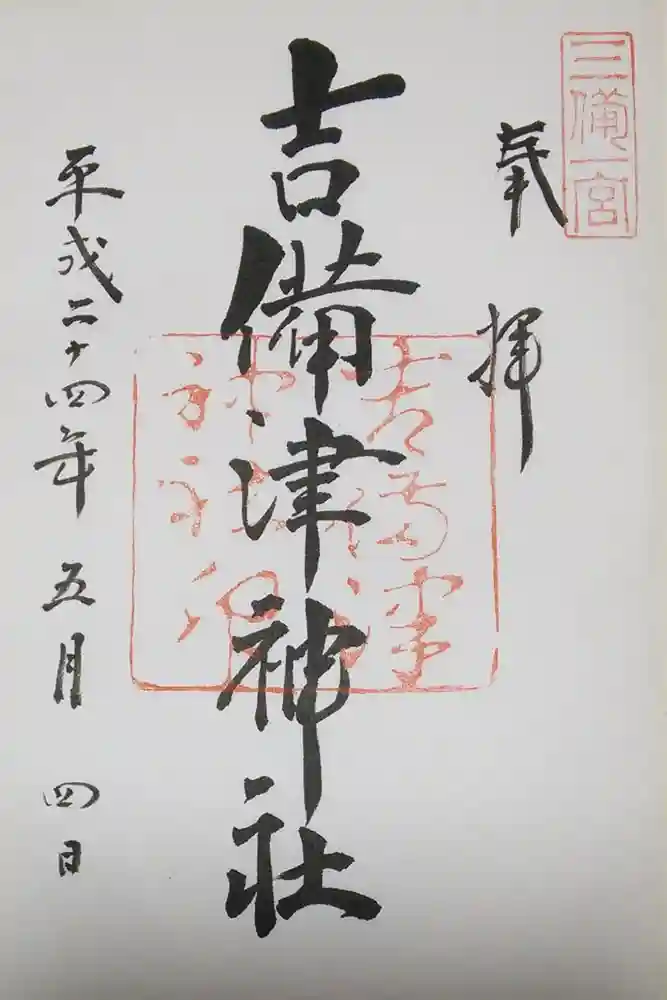 三備一宮
奉拝
吉備津神社
吉備津
神社
平成二十四年 五月 四日